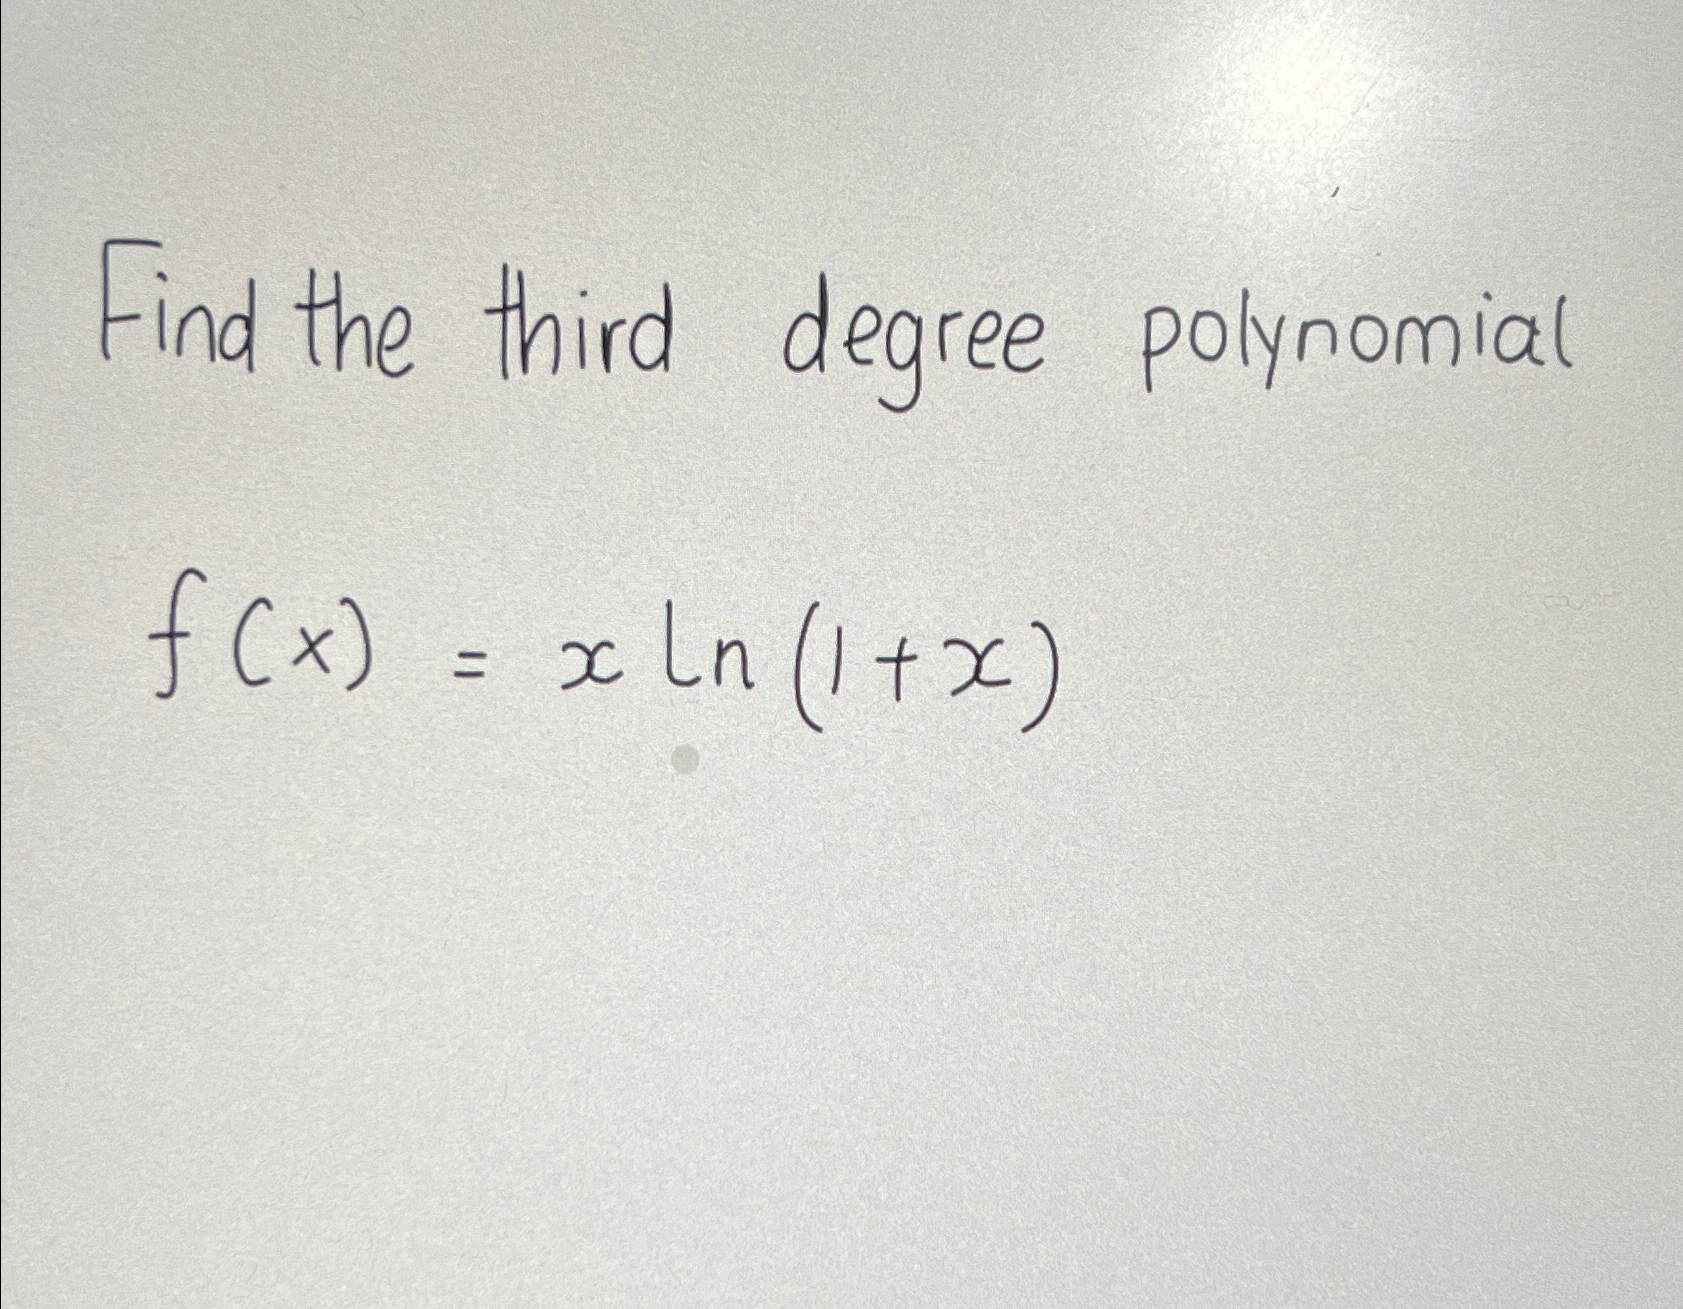 Find the third degree polynomial
f(x) = x ln(1+x)